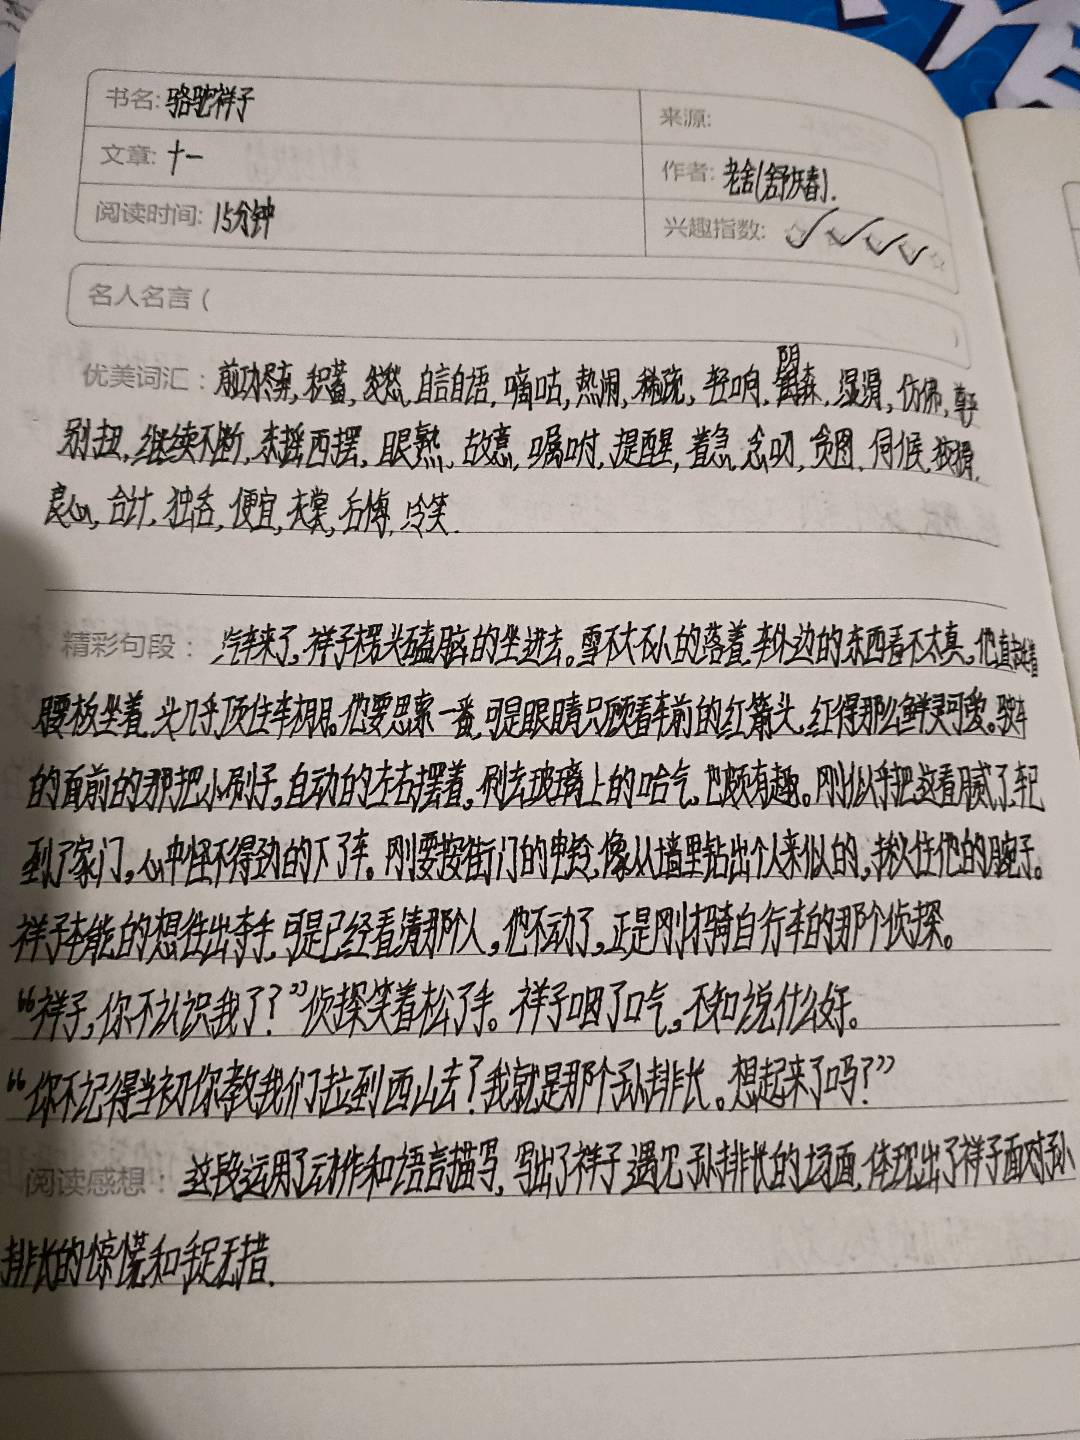 书名: 骆驼祥子
来源:
文章: 十一
作者: 老舍(舒庆春).
阅读时间: 15分钟
兴趣指数:
名人名言 (
优美词汇: 前功尽弃, 积蓄, 发愁, 自言自语, 嘀咕, 热闹, 稀疏, 轻响, 阴森, 湿滑, 仿佛,
别扭, 继续不断, 东摇西摆, 眼熟, 故意, 嘱咐, 提醒, 着急, 念叨, 贪图, 伺候,
良心, 合计, 独吞, 便宜, 衣裳, 后悔, 冷笑.
精彩句段: 汽车来了, 祥子楞头磕脑的坐进去。雪不大不小的落着, 车外边的东西看不太真, 他直挺着
腰板坐着, 头几乎顶住车棚。他要思索一番, 可是眼睛只顾看车前的红箭头, 红得那么鲜灵可爱。驶车
的面前的那把小刷子, 自动的左右摆着, 刷去玻璃上的哈气, 也颇有趣。刚似乎把这看腻了, 车已
到了家门, 心中怪不得劲的下了车。刚要按街门的电铃, 像从墙里钻出个人来似的, 揪住他的腕子。
祥子本能的想往出夺手, 可是已经看清那个人, 他不动了, 正是刚才骑自行车的那个侦探。
“祥子, 你不认识我了?”侦探笑着松了手。祥子咽了口气, 不知说什么好。
“你不记得当初你教我们拉到西山去? 我就是那个孙排长。想起来了吗?”
阅读感想: 这段运用了动作和语言描写, 写出了祥子遇见孙排长的场面, 体现出了祥子面对孙
排长的惊慌和手足无措.